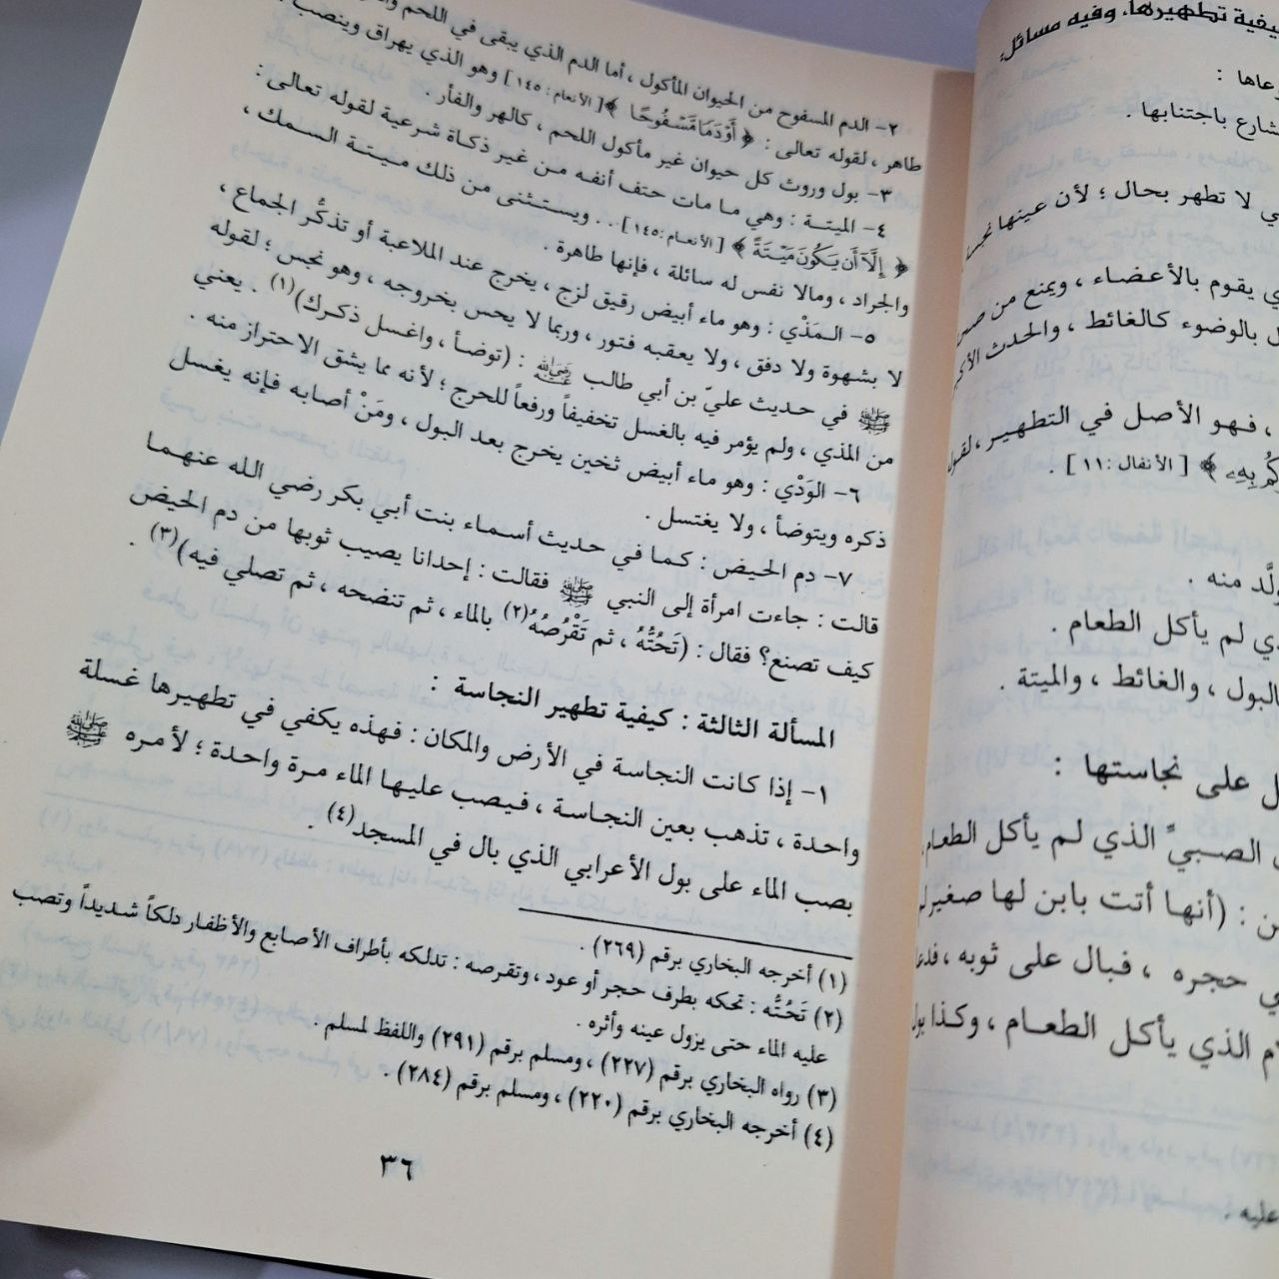 يفية تطهيرها، وفيه مسائل:
شارع باجتنابها .
ي لا تطهر بحال ؛ لأن عينها
ي يقوم بالأعضاء ، ويمنع من
ل بالوضوء كالغائط ، والحدث
، فهو الأصل في التطهير ،
كُم بِهِۦ ﴾ [ الأنفال : ١١ ] .
لَّد منه .
ي لم يأكل الطعام .
البول ، والغائط ، والميتة .
ل على نجاستها :
الصبيّ الذي لم يأكل الطعام
ن : (أنها أتت بابن لها صغير
ي حجره ، فبال على ثوبه ،
م الذي يأكل الطعام ، وكذا
عليه .
٢- الدم المسفوح من الحيوان المأكول ، أما الدم الذي يبقى في اللحم
طاهر ، لقوله تعالى : ﴿ أَوْ دَمًا مَّسْفُوحًا ﴾ [ الأنعام : ١٤٥ ] وهو الذي يهراق وينصب
٣- بول وروث كل حيوان غير مأكول اللحم ، كالهر والفأر .
٤- الميتة : وهي ما مات حتف أنفه من غير ذكاة شرعية لقوله تعالى :
﴿ إِلَّآ أَن يَكُونَ مَيْتَةً ﴾ [ الأنعام : ١٤٥ ] . . ويستثنى من ذلك ميتة السمك ،
والجراد ، ومالا نفس له سائلة ، فإنها طاهرة .
٥- المَذْي : وهو ماء أبيض رقيق لزج ، يخرج عند الملاعبة أو تذكُّر الجماع ،
لا بشهوة ولا دفق ، ولا يعقبه فتور ، وربما لا يحس بخروجه ، وهو نجس ؛ لقوله
ﷺ في حديث عليّ بن أبي طالب رضي الله عنه : (توضأ ، واغسل ذكرك)(١) . يعني
من المذي ، ولم يؤمر فيه بالغسل تخفيفاً ورفعاً للحرج ؛ لأنه مما يشق الاحتراز منه .
٦- الوَدْي : وهو ماء أبيض ثخين يخرج بعد البول ، ومَنْ أصابه فإنه يغسل
ذكره ويتوضأ ، ولا يغتسل .
٧- دم الحيض : كما في حديث أسماء بنت أبي بكر رضي الله عنهما
قالت : جاءت امرأة إلى النبي ﷺ فقالت : إحدانا يصيب ثوبها من دم الحيض
كيف تصنع؟ فقال : (تَحُتُّهُ ، ثم تَقْرُصُهُ(٢) بالماء ، ثم تنضحه ، ثم تصلي فيه)(٣) .
المسألة الثالثة : كيفية تطهير النجاسة :
١- إذا كانت النجاسة في الأرض والمكان : فهذه يكفي في تطهيرها غسلة
واحدة ، تذهب بعين النجاسة ، فيصب عليها الماء مرة واحدة ؛ لأمره ﷺ
بصب الماء على بول الأعرابي الذي بال في المسجد(٤) .
(١) أخرجه البخاري برقم (٢٦٩) .
(٢) تَحُتُّه : تحكه بطرف حجر أو عود ، وتقرصه : تدلكه بأطراف الأصابع والأظفار دلكاً شديداً وتصب
عليه الماء حتى يزول عينه وأثره .
(٣) رواه البخاري برقم (٢٢٧) ، ومسلم برقم (٢٩١) واللفظ لمسلم .
(٤) أخرجه البخاري برقم (٢٢٠) ، ومسلم برقم (٢٨٤) .
٣٦